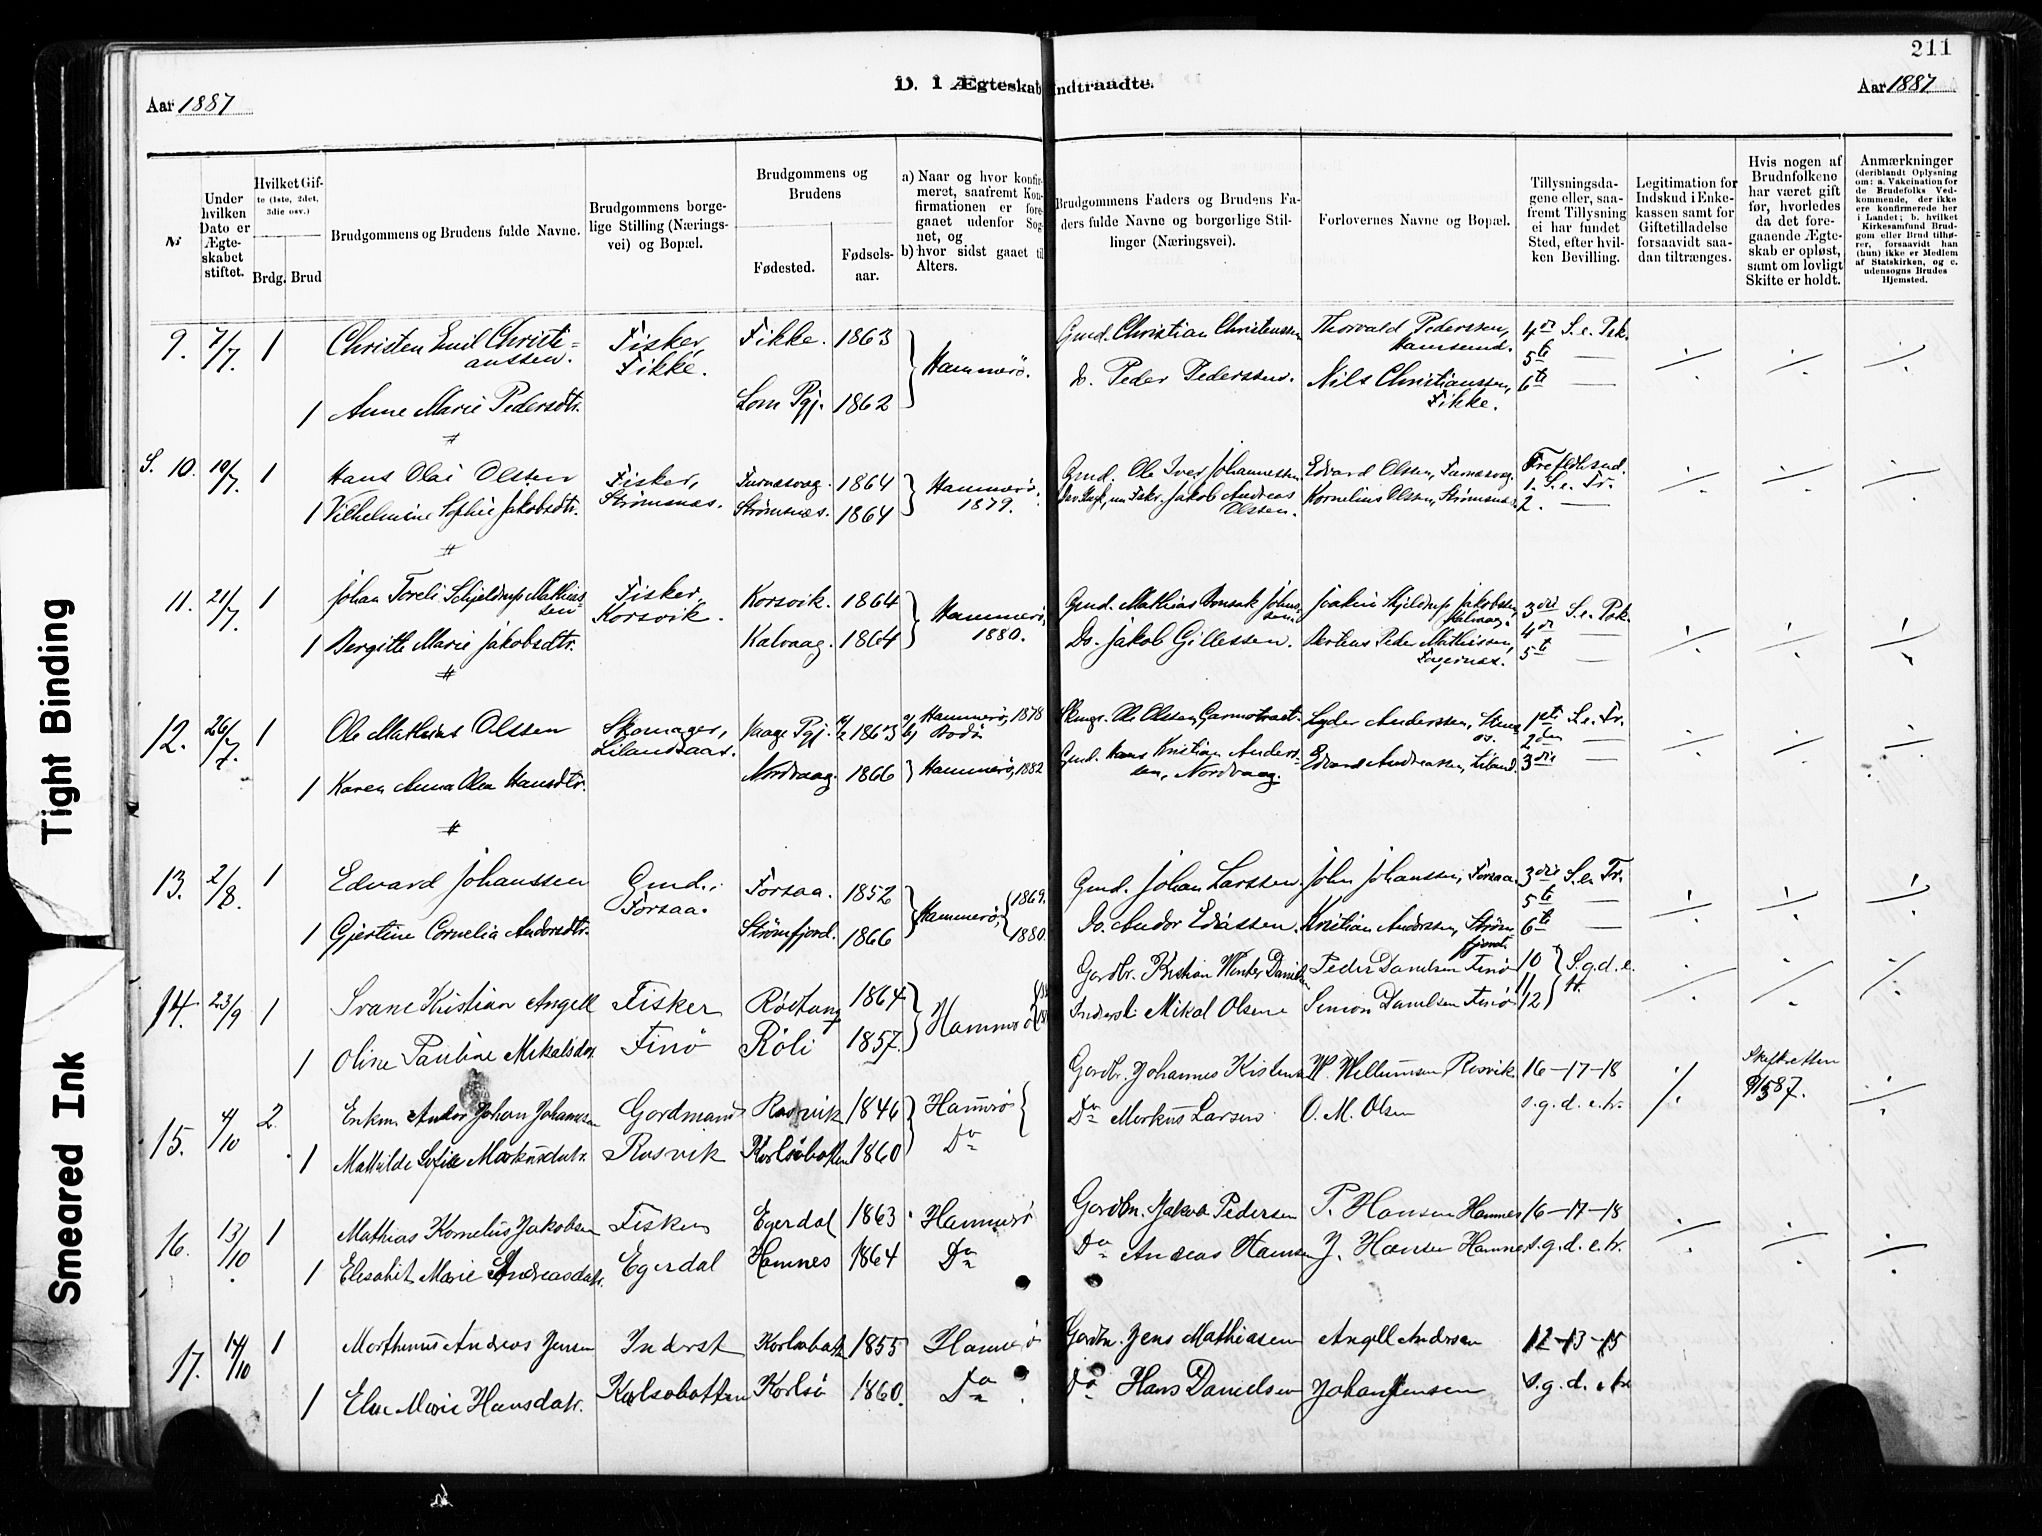 211
D. I Ægteskab Indtraadte.
Aar 1887
Aar 1887
№
Under hvilken Dato er Ægteskabet stiftet.
Hvilket Gifte (1ste, 2det, 3die osv.)
Brdg. Brud
Brudgommens og Brudens fulde Navne.
Brudgommens borgelige Stilling (Næringsvei) og Bopæl.
Brudgommens og Brudens
Fødested.
Fødselsaar.
a) Naar og hvor konfirmeret, saafremt Konfirmationen er foregaaet udenfor Sognet, og
b) hvor sidst gaaet til Alters.
Brudgommens Faders og Brudens Faders fulde Navne og borgerlige Stillinger (Næringsvei).
Forlovernes Navne og Bopæl.
Tillysningsdagene eller, saafremt Tillysning ei har fundet Sted, efter hvilken Bevilling.
Legitimation for Indskud i Enkekassen samt for Giftetilladelse forsaavidt saadan tiltrænges.
Hvis nogen af Brudnfolkene har været gift før, hvorledes da det foregaaende Ægteskab er opløst, samt om lovligt Skifte er holdt.
Anmærkninger (deriblandt Oplysning om: a. Vakcination for de Brudefolks Vedkommende, der ikke ere konfirmerede her i Landet; b. hvilket Kirkesamfund Brudgom eller Brud tilhører, forsaavidt han (hun) ikke er Medlem af Statskirken, og c. udensogns Brudes Hjemsted.
9. 7/7. 1 Christen Emil Christianssen. Fisker, Fikke. Fikke. 1863 Hammerø. Gmd. Christian Christenssen Thorvald Pederssen, Hamsund. 4de S. e. Psk.
5te —
1 Anne Marie Pedersdtr. Lom Pgj. 1862 Do. Peder Pederssen. Nils Christianssen, Fikke. 6te —
S. 10. 10/7. 1 Hans Olai Olssen Fisker, Strømsnæs. Furnesvaag. 1864 Hammerø, 1879. Gmd. Ole Iver Johannessen Edvard Olssen, Furnesvag. Trefoldsnd.
1. S. e. Tr.
1 Vilhelmine Sophie Jakobsdtr. Strømsnæs. 1864 Jakob Andreas Olssen. Kornelius Olssen, Strømsnæs. 2. —
11. 21/7. 1 Johan Toreli Schjeldrup Mathiassen Fisker, Korsvik. Korsvik. 1864 Hammerø, 1880. Gmd. Mathias Bonsak Johnssen Joakim Skjeldrup Jakobssen, Kalvaag. 3die S. e. Psk.
4de —
1 Bergitte Marie Jakobsdtr. Kalvaag. 1864 Do. Jakob Gillessen. Peder Mathissen, Fagernæs. 5te —
12. 26/7. 1 Ole Mathias Olssen Skomager, Lilandsaas. Vaage Pgj. 1863 a) Hammerø, 1878 b) Bodø Ole Olssen, Garmotraet. Lyder Anderssen, 1ste S. e. Tr.
2den —
1 Karen Anna Olea Hansdtr. Nordvaag. 1866 Hammerø, 1882 Gmd. Hans Kristian Anderssen, Nordvaag. Edvard Andreassen, Liland. 3die —
13. 2/8. 1 Edvard Johanssen Gmd., Forsaa. Forsaa. 1852 Hammerø, 1869. Gmd. Johan Larssen. John Johanssen, Forsaa. 3die S. e. Tr.
5te —
1 Gjertine Cornelia Andorsdtr. Strømfjord. 1866 1880. Do. Andor Eliassen. Kristian Anderssen, Strømfjord. 6te —
14. 23/9 1 Svane Kristian Angell Fisker Finø Røstang 1864 Hammerø Gardbr. Kristian Winter Danielsen Peder Danielsen Finø 10 S.g.d.e.
11 tr.
1 Oline Pauline Mikalsdtr. Røli 1857. Inderst Mikal Olsen Simon Danielsen Finø 12
15. 4/10 2. Enkem. Andor Johan Johannsen Gardmand Rosvik Rosvik 1846 Hamerø Gardbr. Johannes Kistensen W. Willumsen Rosvik 16–17–18 Skifteretten 9/5 87.
1 Mathilde Sofie Markusdatr. Korlsøbotten 1860 Do Do Markus Larsen O. M. Olsen s.g.d.e.tr.
16. 13/10 1 Mathias Kornelius Jakobsen Fisker Egerdal Egerdal 1863 Hammerø Gardbr. Jakob Pedersen P. Hansen Hamnes 16–17–18
1 Elisabet Marie Andreasdatr. Hamnes 1864 Do Do Andreas Hansen J. Hansen Hamnes s.g.d.e.tr.
17. 14/10 1 Morthinus Andreas Jensen Inderst Korlsobotten Korlsobotten 1855 Hamerø Gardbr. Jens Mathiasen Angell Andersen 12–13–15
1 Else Marie Hansdatr. Korlsø 1860. Do Do Hans Danielsen Johan Jensen s.g.d.e.tr.
Tight Binding
Smeared Ink